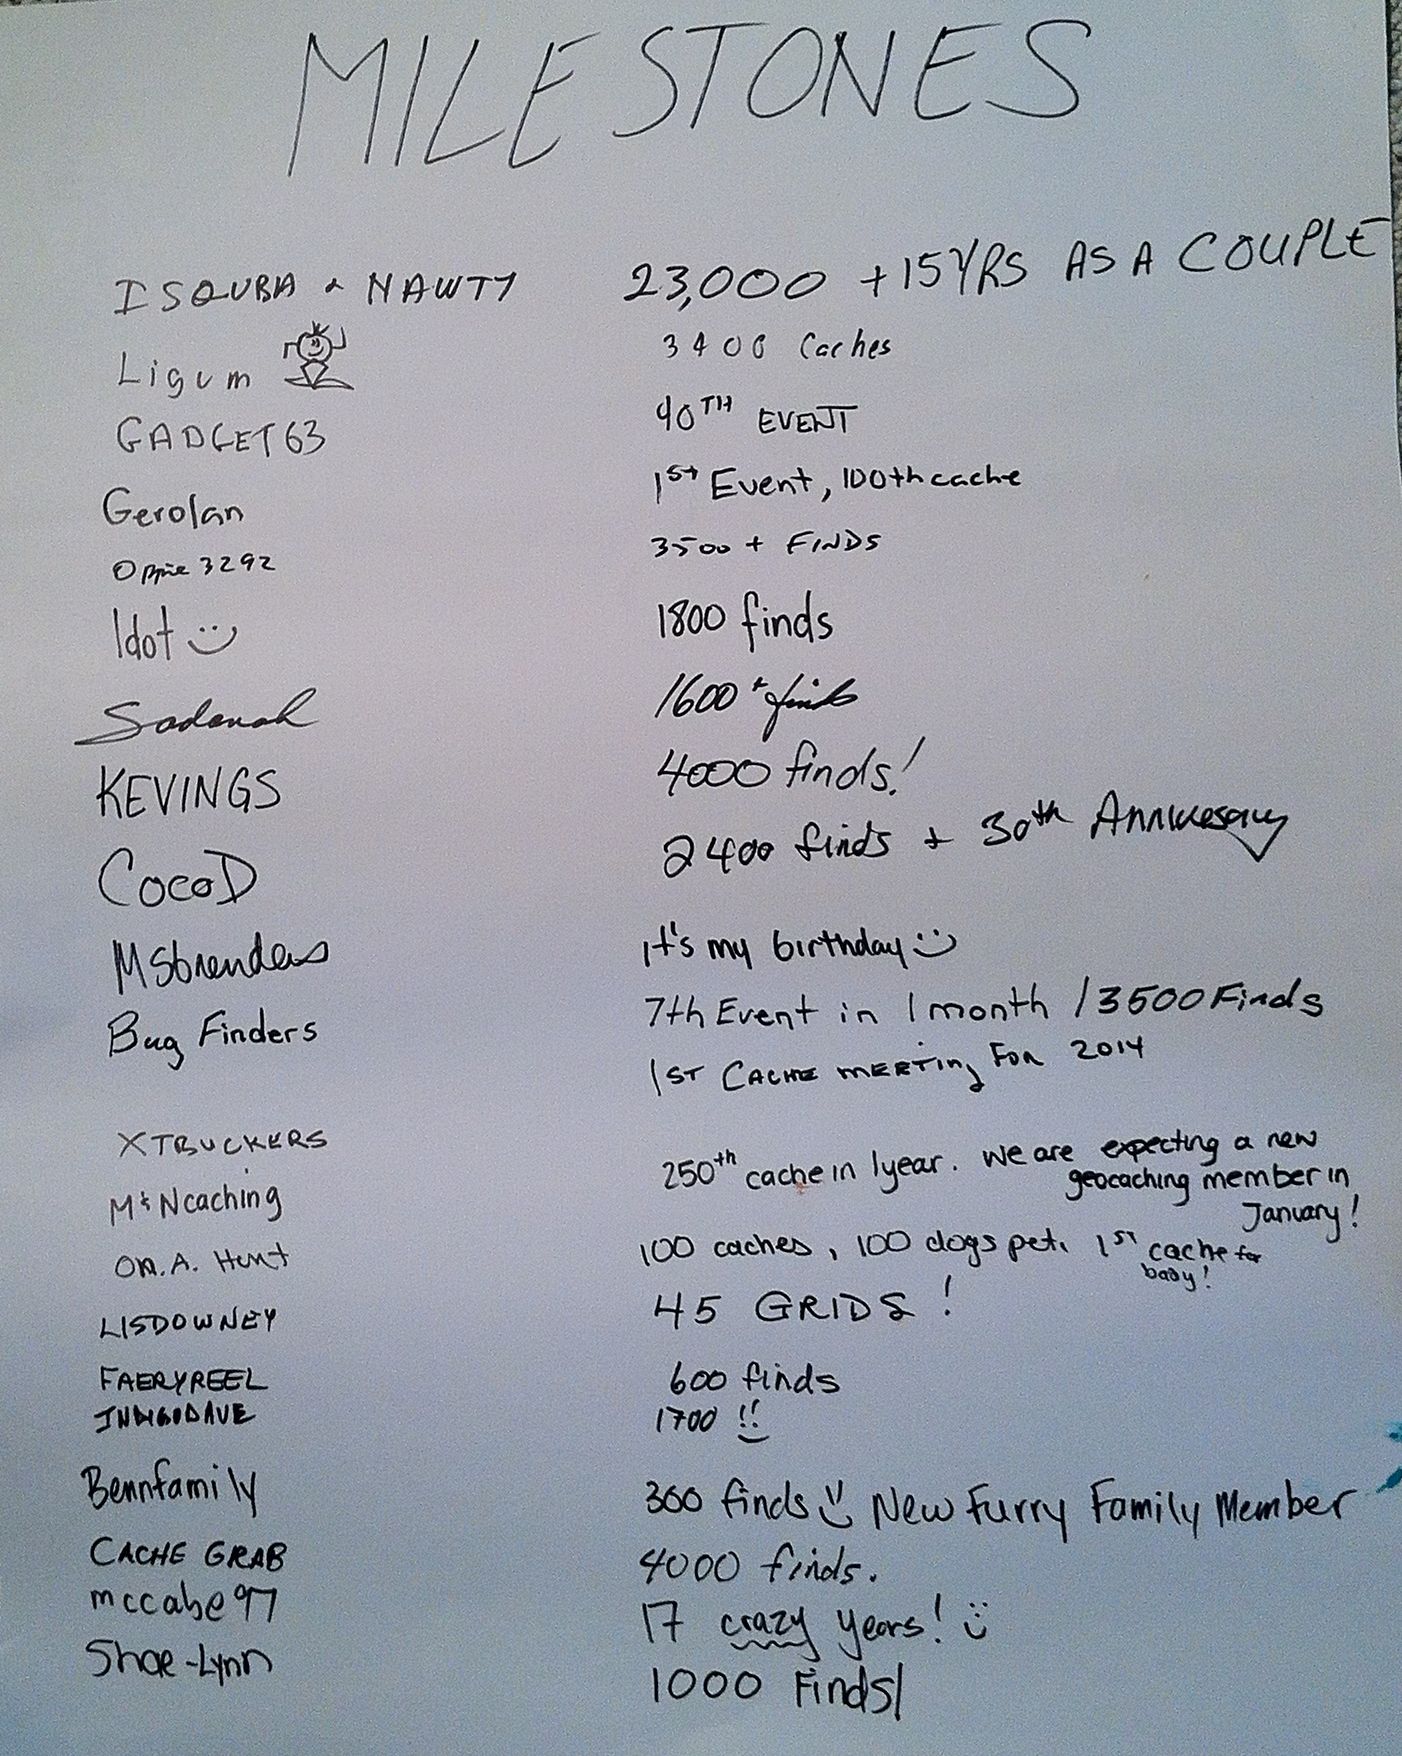 MILESTONES
ISQUBA & NAWTY 23,000 + 15 YRS AS A COUPLE
Ligum 3400 Caches
GADGET63 40TH EVENT
Gerolan 1st Event, 100th cache
3292 3500 + FINDS
Idot 1800 finds
Sadanah 1600+ finds
KEVINGS 4000 finds!
CocoD 2400 finds + 30th Anniversary
Msbrendas it's my birthday
Bug Finders 7th Event in 1 month / 3500 Finds
1ST CACHE MEETING FOR 2014
XTRUCKERS
M&Ncaching 250th cache in 1 year. We are expecting a new
geocaching member in
January!
ON.A. Hunt 100 caches, 100 dogs pet. 1ST cache for
baby!
LISDOWNEY 45 GRIDS!
FAERYREEL 600 finds
INDIGODAVE 1700 !!
Bennfamily 300 finds New Furry Family Member
CACHE GRAB 4000 finds.
mccabe97 17 crazy years!
Shae-Lynn 1000 Finds!